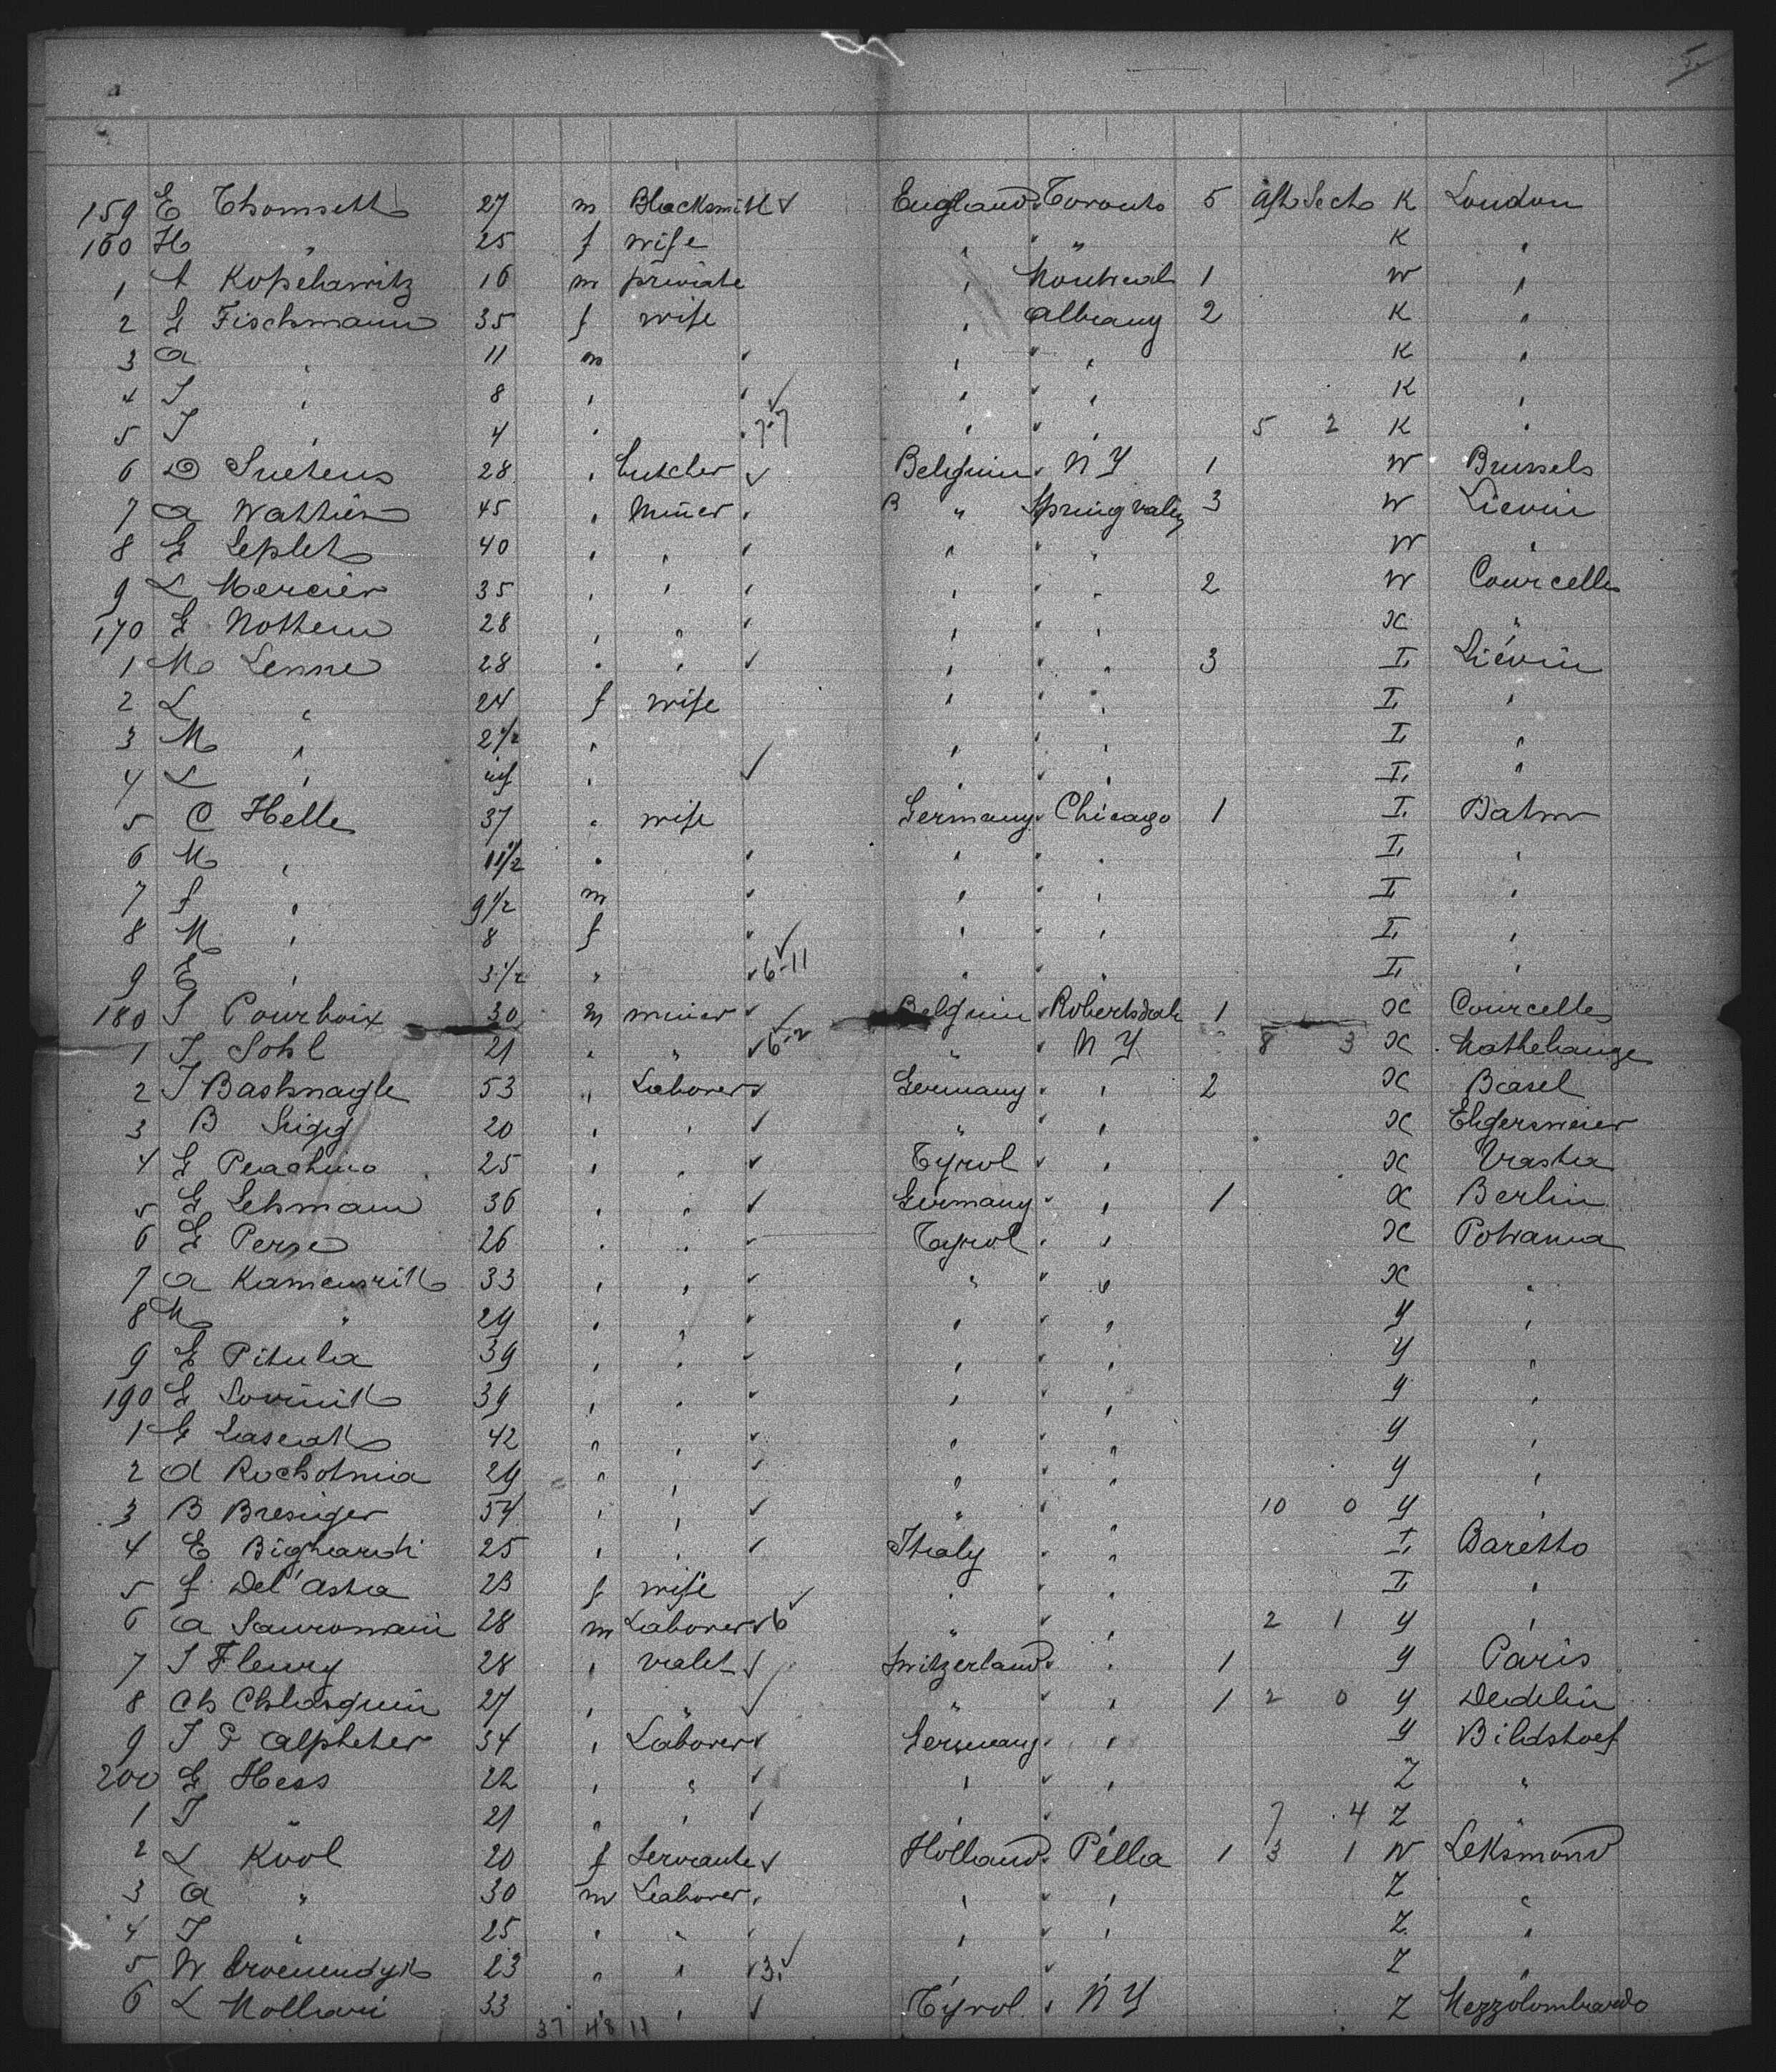 159 E Thomsett 27 m Blacksmith ✓ England ✓ Toronto 5 Aft Sect K London
160 H " 25 f wife " ✓ " K "
1 Kopehawitz 16 m private " Montreal 1 W "
2 G Fischmann 35 f wife " Albany 2 K "
3 A " 11 m ✓ " ✓ " K "
4 J " 8 " ✓ ✓ " ✓ " K "
5 J " 4 " " 7-7 " ✓ " 5 2 K "
6 D Suetens 28 " butcher ✓ Belgium ✓ N Y 1 W Brussels
7 A Wattier 45 " Miner " B " Spring valey 3 W Lievin
8 G Leplet 40 " " ✓ " ✓ " W "
9 L Mercier 35 " " ✓ " ✓ " 2 W Courcelles
170 G Nottem 28 " " ✓ " ✓ " X "
1 M Lenne 28 " " ✓ " ✓ " 3 I Liévin
2 L " 24 f wife " ✓ " I "
3 M " 2 1/2 " " ✓ " I "
4 L " inf " ✓ " ✓ " I "
5 C Helle 37 " wife Germany ✓ Chicago 1 I
6 M " 11 1/2 " ✓ " ✓ " I "
7 f " 9 1/2 m ✓ " ✓ " I "
8 M " 8 f ✓ ✓ " ✓ " I "
9 E " 3 1/2 " ✓ 6-11 " ✓ " I "
180 J Pourboix 30 m miner ✓ ✓ Belgium ✓ Robertsdale 1 X Courcelles
1 J Sohl 21 " " ✓ 6-2 " ✓ N Y 8 3 X Mathelange
2 J Bashnagle 53 " Laborer ✓ Germany ✓ " 2 X Basel
3 B Sigg 20 " " ✓ " ✓ " X
4 G Peachino 25 " " ✓ Tyrol ✓ " X
5 G Lehmann 36 " " ✓ Germany ✓ " 1 X Berlin
6 G Perse 26 " " ✓ Tyrol ✓ " X
7 A 33 " " ✓ " ✓ " X "
8 M " 29 " " ✓ " ✓ " Y "
9 G Pitula 39 " " ✓ " ✓ " Y "
190 G 39 " " ✓ " ✓ " Y "
1 G 42 " " ✓ " ✓ " Y "
2 A Rocholmia 29 " " ✓ " ✓ " Y "
3 B Bresiger 54 " " ✓ " ✓ " 10 0 Y "
4 E Bignardi 25 " " ✓ Italy ✓ " I Baretto
5 f Del'Asta 23 f wife " ✓ " I "
6 A 28 m Laborer ✓ 6 ✓ " ✓ " 2 1 Y "
7 J Fleury 28 " valet ✓ Switzerland ✓ " 1 Y Paris
8 Ch 27 " " ✓ " ✓ " 1 2 0 Y
9 J P Alpheter 34 " Laborer ✓ Germany ✓ " Y
200 G Hess 22 " " ✓ " ✓ " Z "
1 J " 21 " " ✓ " ✓ " 7 4 Z "
2 L Kool 20 f Servante ✓ Holland ✓ Pella 1 3 1 W Leksmond
3 A " 30 m Laborer " " ✓ " Z "
4 J " 25 " " ✓ " ✓ " Z "
5 W Groenendyk 23 " " ✓ 3 ✓ " ✓ " Z "
6 L 33 " " ✓ Tyrol ✓ N Y Z Mezzolombardo
37 48 11